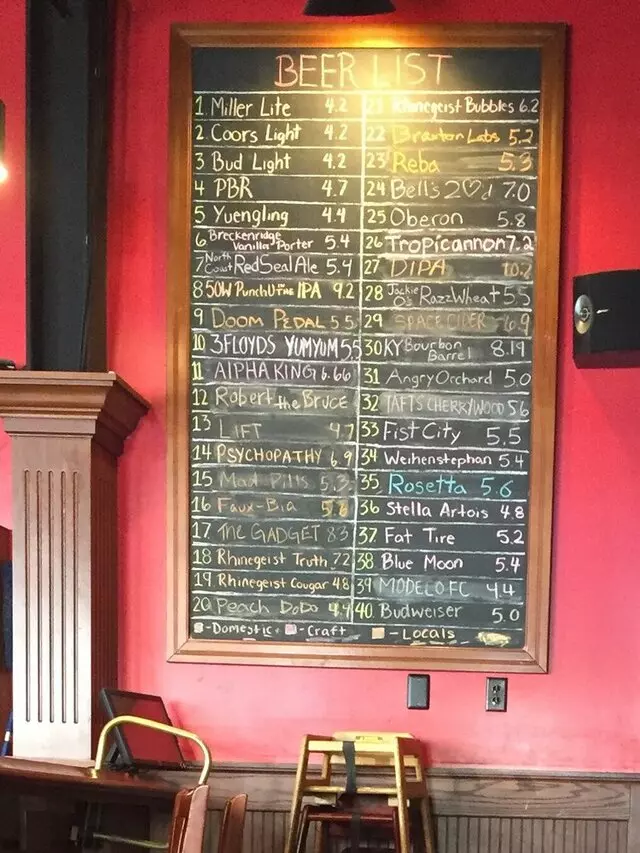 BEER LIST
1 Miller Lite 4.2
2 Coors Light 4.2
3 Bud Light 4.2
4 PBR 4.7
5 Yuengling 4.4
6 Breckenridge Vanilla Porter 5.4
7 North Coast Red Seal Ale 5.4
8 50W Punch U IPA 9.2
9 DOOM PEDAL 5.5
10 3FLOYDS YUMYUM 5.5
11 AlPHA KING 6.66
12 Robert the Bruce
13 LIFT 4.7
14 PSYCHOPATHY 6.9
15 Mad Pills 5.3
16 Faux-Bia 5.8
17 THE GADGET 8.3
18 Rhinegeist Truth 7.2
19 Rhinegeist Cougar 4.8
20 Peach DoDo 4.9
21 Rhinegeist Bubbles 6.2
22 Braxton Labs 5.2
23 Reba 5.3
24 Bell's 2♡d 7.0
25 Oberon 5.8
26 Tropicannon 7.2
27 DIPA 10.2
28 Jackie O's RazzWheat 5.5
29 SPACE CIDER 6.9
30 KY Bourbon Barrel 8.19
31 Angry Orchard 5.0
32 TAFTS CHERRYWOOD 5.6
33 Fist City 5.5
34 Weihenstephan 5.4
35 Rosetta 5.6
36 Stella Artois 4.8
37 Fat Tire 5.2
38 Blue Moon 5.4
39 MODELO FC 4.4
40 Budweiser 5.0
-Domestic -Craft -Locals